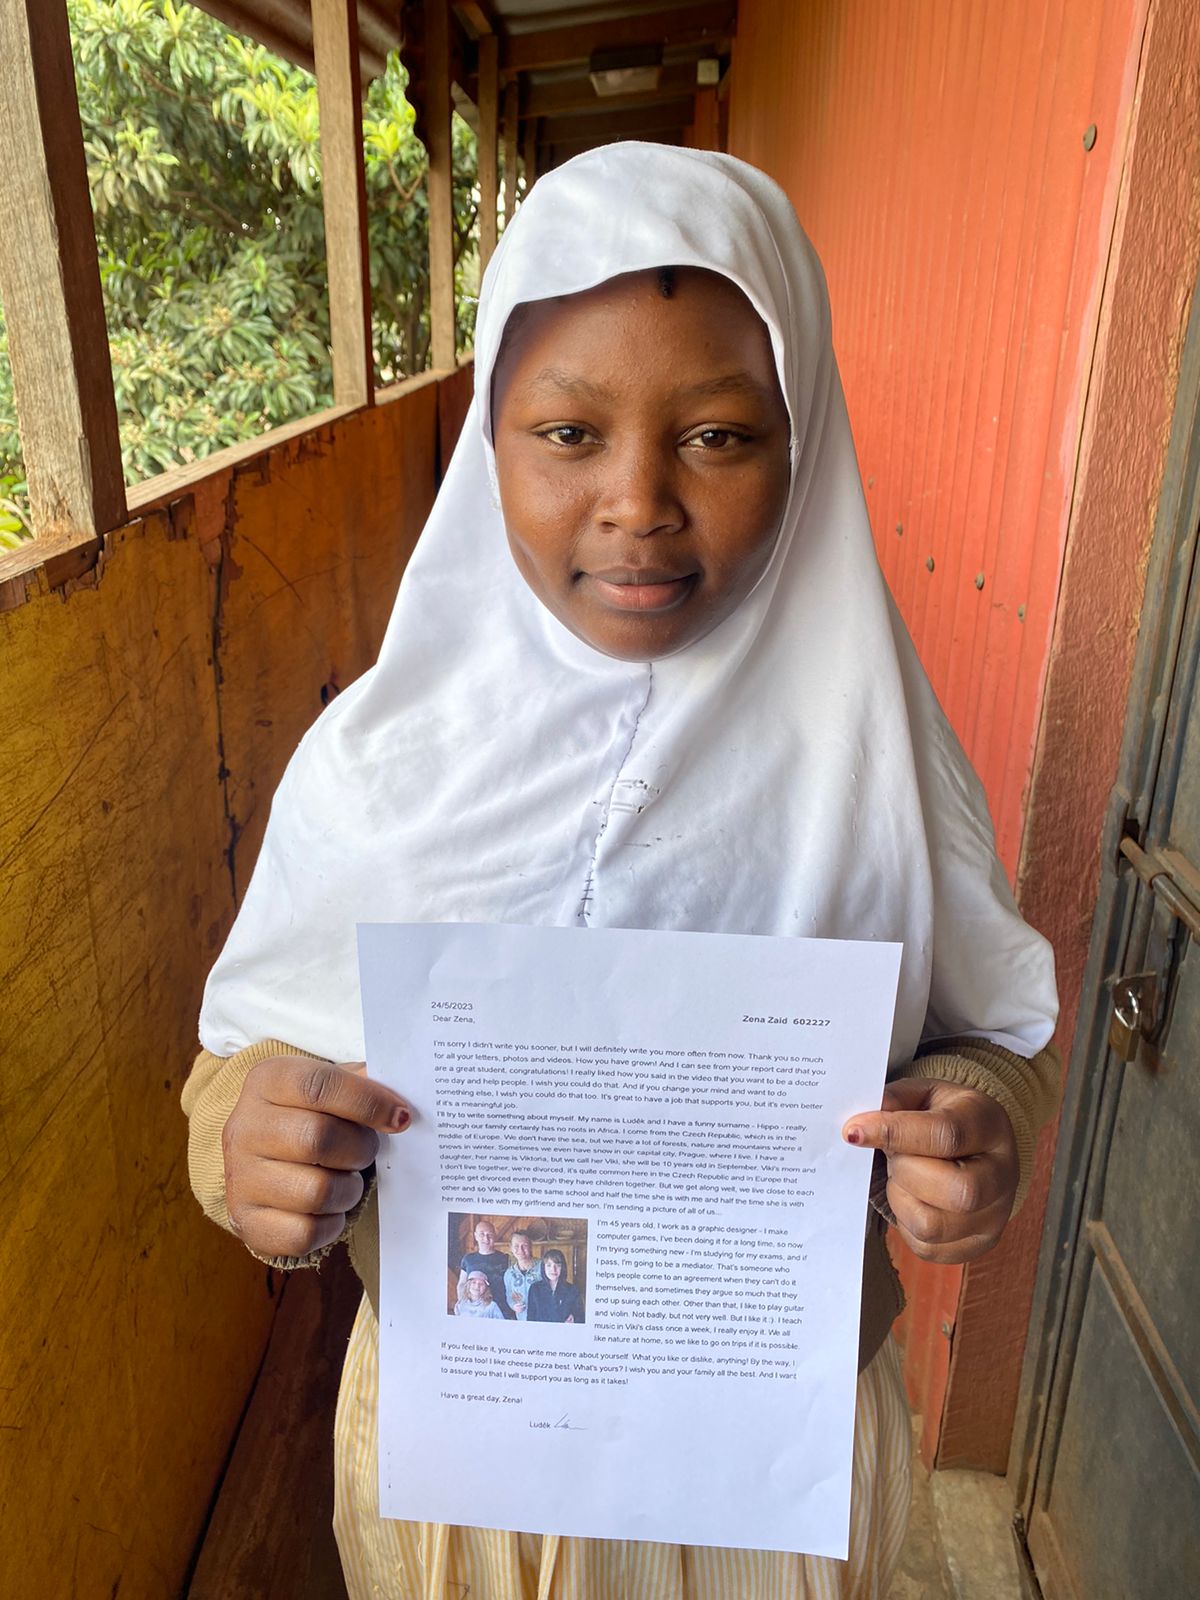 24/5/2023
Dear Zena,
Zena Zaid 602227
I'm sorry I didn't write you sooner, but I will definitely write you more often from now. Thank you so much
for all your letters, photos and videos. How you have grown! And I can see from your report card that you
are a great student, congratulations! I really liked how you said in the video that you want to be a doctor
one day and help people. I wish you could do that. And if you change your mind and want to do
something else, I wish you could do that too. It's great to have a job that supports you, but it's even better
if it's a meaningful job.
I'll try to write something about myself. My name is Luděk and I have a funny surname - Hippo - really,
although our family certainly has no roots in Africa. I come from the Czech Republic, which is in the
middle of Europe. We don't have the sea, but we have a lot of forests, nature and mountains where it
snows in winter. Sometimes we even have snow in our capital city, Prague, where I live. I have a
daughter, her name is Viktoria, but we call her Viki, she will be 10 years old in September. Viki's mom and
I don't live together, we're divorced, it's quite common here in the Czech Republic and in Europe that
people get divorced even though they have children together. But we get along well, we live close to each
other and so Viki goes to the same school and half the time she is with me and half the time she is with
her mom. I live with my girlfriend and her son. I'm sending a picture of all of us...
I'm 45 years old, I work as a graphic designer - I make
computer games, I've been doing it for a long time, so now
I'm trying something new - I'm studying for my exams, and if
I pass, I'm going to be a mediator. That's someone who
helps people come to an agreement when they can't do it
themselves, and sometimes they argue so much that they
end up suing each other. Other than that, I like to play guitar
and violin. Not badly, but not very well. But I like it :). I teach
music in Viki's class once a week, I really enjoy it. We all
like nature at home, so we like to go on trips if it is possible.
If you feel like it, you can write me more about yourself. What you like or dislike, anything! By the way, I
like pizza too! I like cheese pizza best. What's yours? I wish you and your family all the best. And I want
to assure you that I will support you as long as it takes!
Have a great day, Zena!
Luděk